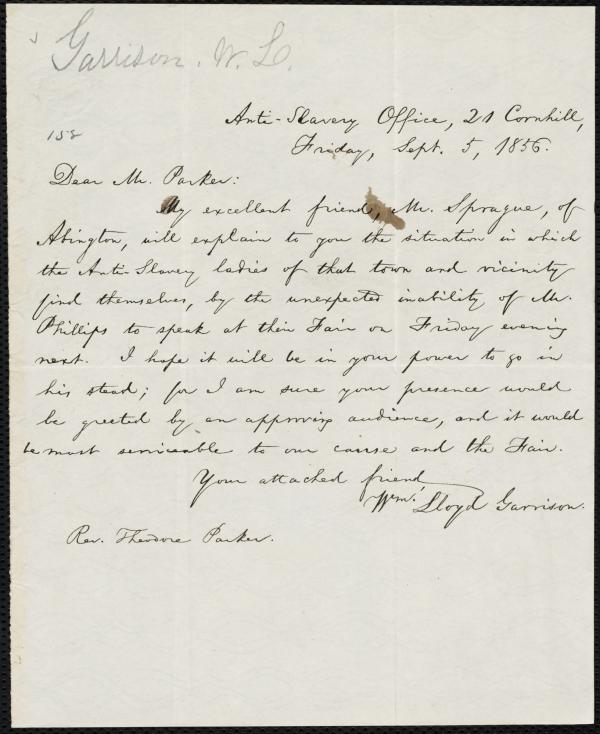 Garrison. W. L.
Anti-Slavery Office, 21 Cornhill,
Friday, Sept. 5, 1856.
Dear Mr. Parker:
My excellent friend, Mr. Sprague, of
Abington, will explain to you the situation in which
the Anti-Slavery ladies of that town and vicinity
find themselves, by the unexpected inability of Mr.
Phillips to speak at their Fair on Friday evening
next. I hope it will be in your power to go in
his stead; for I am sure your presence would
be greeted by an approving audience, and it would
be most serviceable to our cause and the Fair.
Your attached friend
Wm. Lloyd Garrison.
Rev. Theodore Parker.